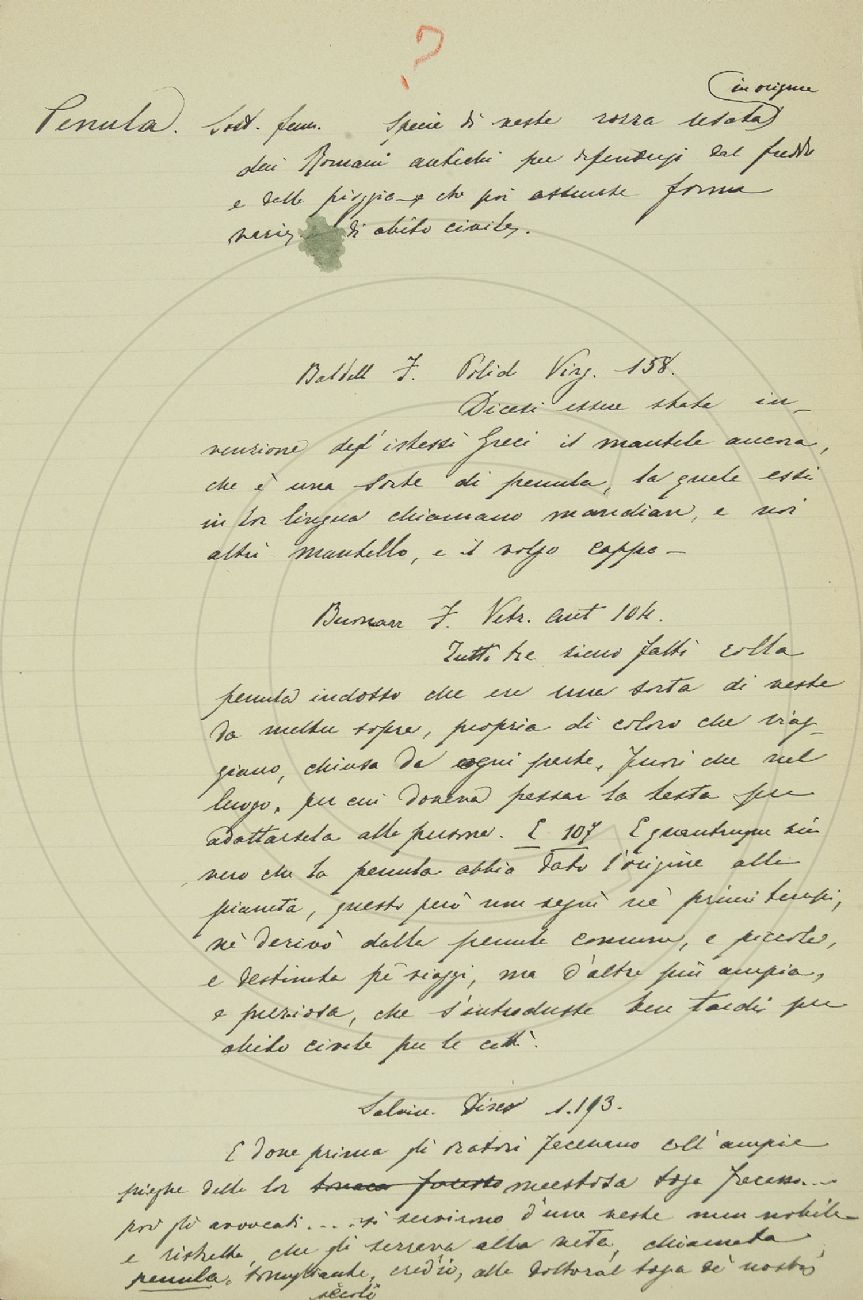 ?
(in origine
Penula. Sost. fem. Specie di veste rozza usata)
dai Romani antichi per difendersi dal freddo
e dalle pioggie e che poi assunse forma
varie di abito civile.
Baldell. F. Polid. Virg. 158.
Dicesi essere stata in-
venzione degl'istessi Greci il mantile ancora,
che è una sorte di penula, la quale essi
in lor lingua chiamano, e noi
altri mantello, e il volgo cappa —
Buonarr. F. Vetr. ant. 104.
Tutti tre sieno fatti colla
penula indosso che era una sorta di veste
da mettersi sopra, propria di coloro che viag-
giano, chiusa da ogni parte, fuori che nel
luogo, per cui doveva passar la testa per
adattarsela alla persona. E 107 E quantunque sia
vero che la penula abbia dato l'origine alla
pianeta, questo però non seguì nè primi tempi,
nè derivò dalla penula comune, e piccola,
e destinata pe' viaggi, ma d'altra più ampia,
e preziosa, che s'introdusse ben tardi per
abito civile per le città.
Salvin. Disc. 1.193.
E dove prima gli oratori facevano coll'ampie
pieghe della lor maestosa toga
poi gli avvocati.... si servirono d'una veste men nobile
e ristretta, che gli serrava alla vita, chiamata
penula, somigliante, cred'io, alla dottoral toga de' nostri
secoli